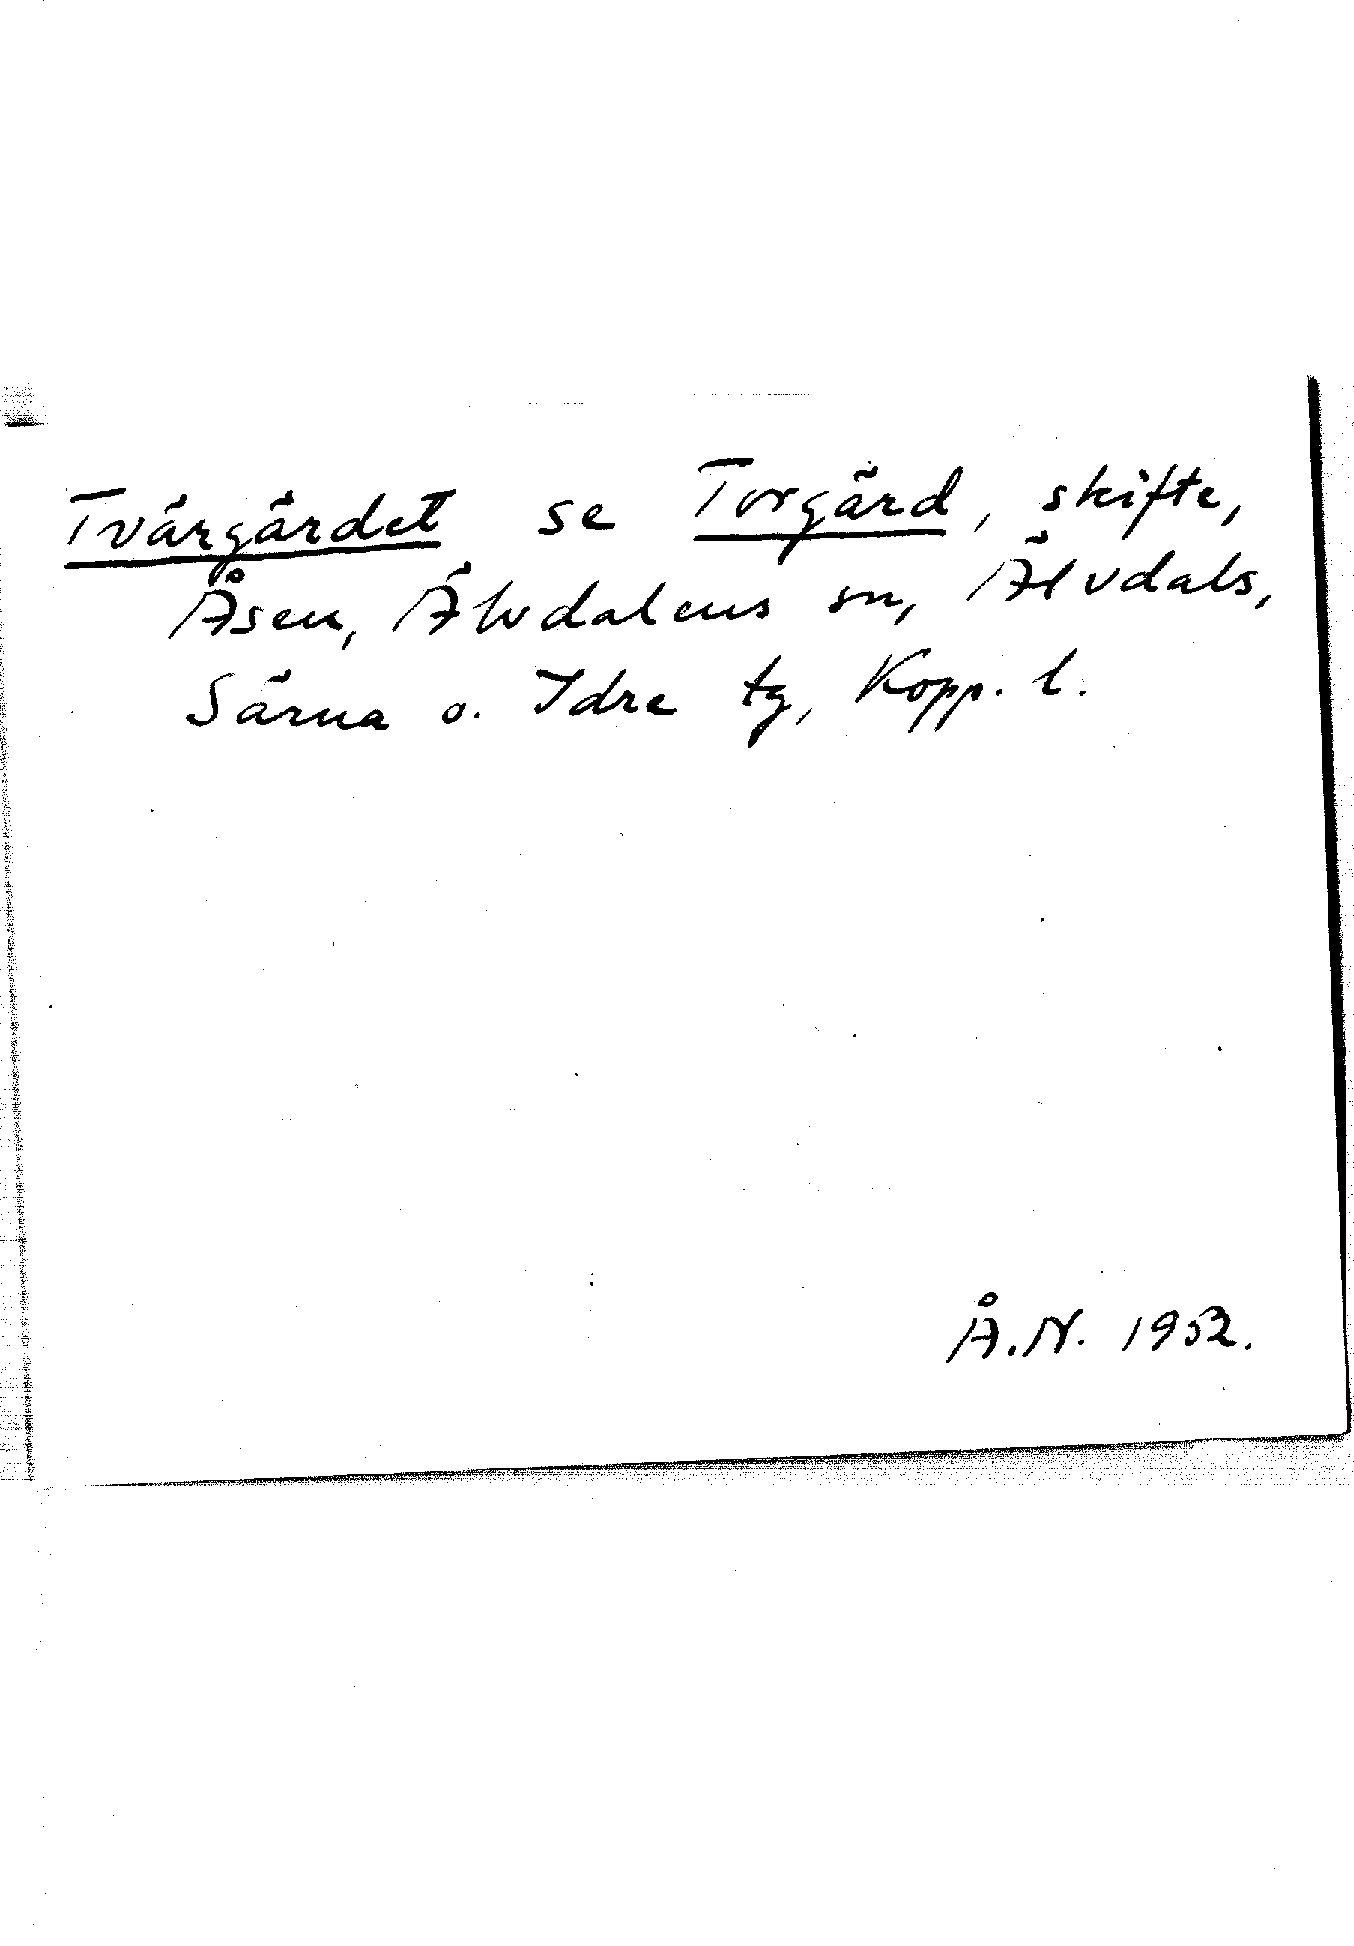 Tvärgärdet se Torgärd, skifte,
Åsen, Älvdalens sn, Älvdals,
Särna o. Idre tg, Kopp. l.
Å.N. 1952.